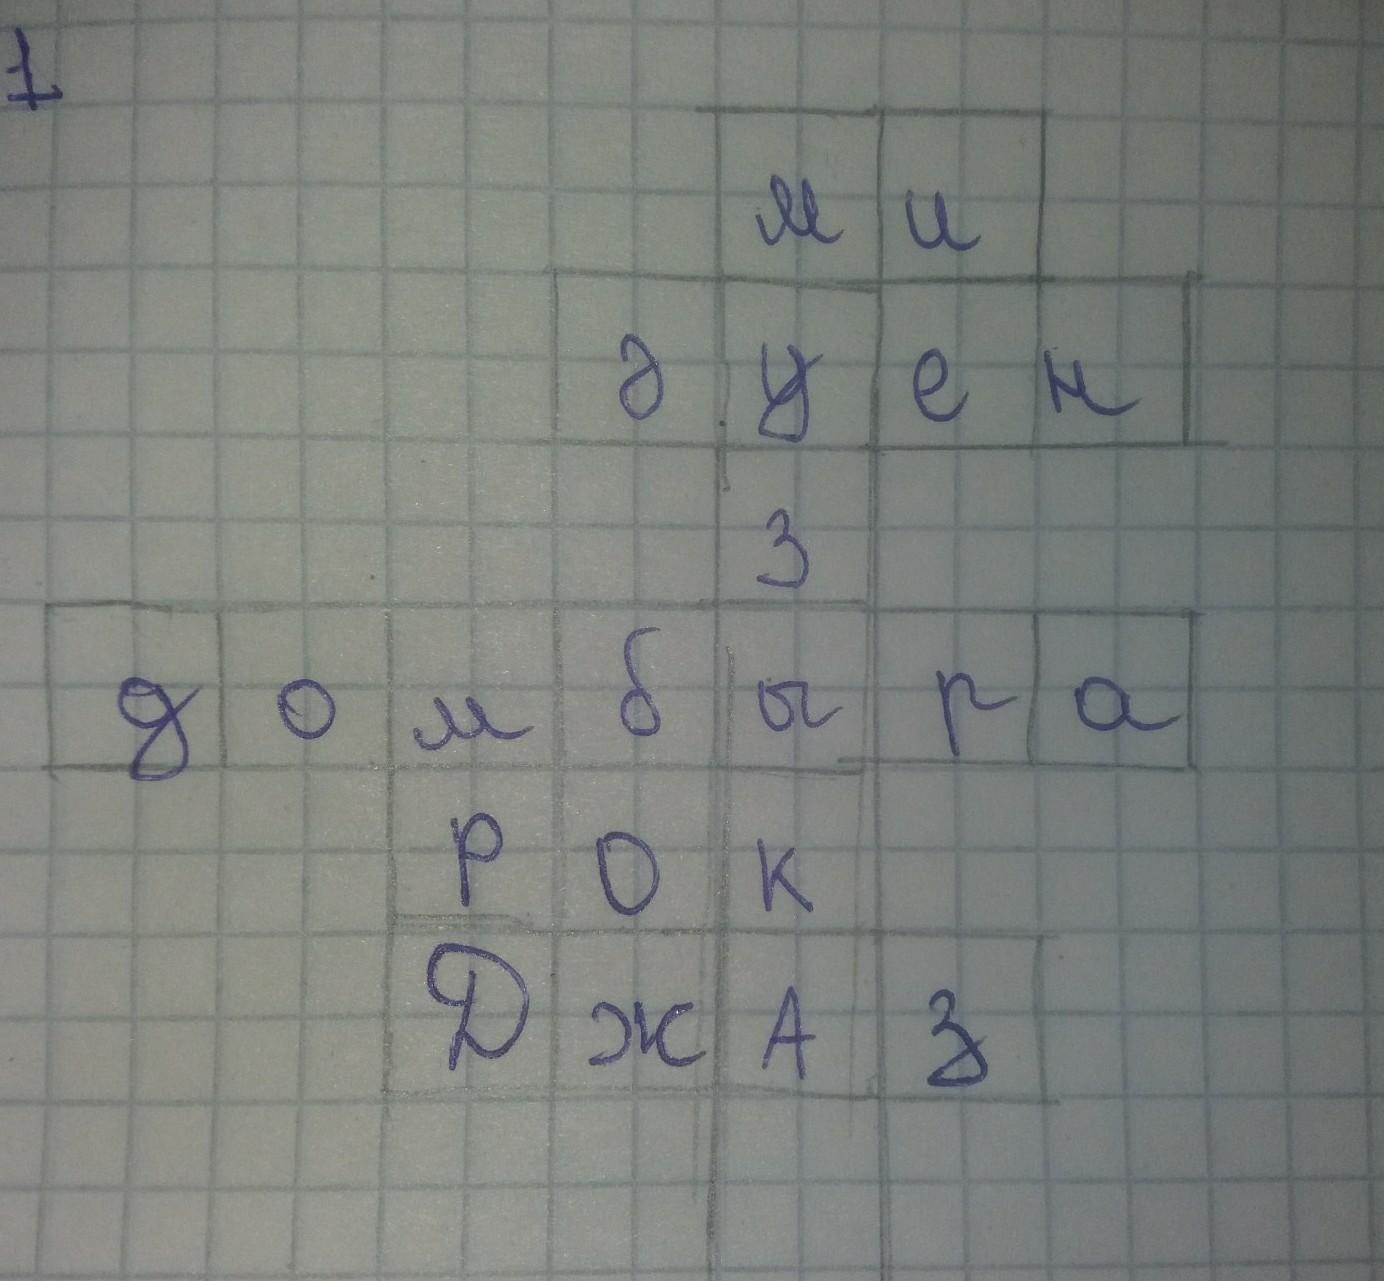 1
ми
әуен
з
домбыра
рок
Джаз